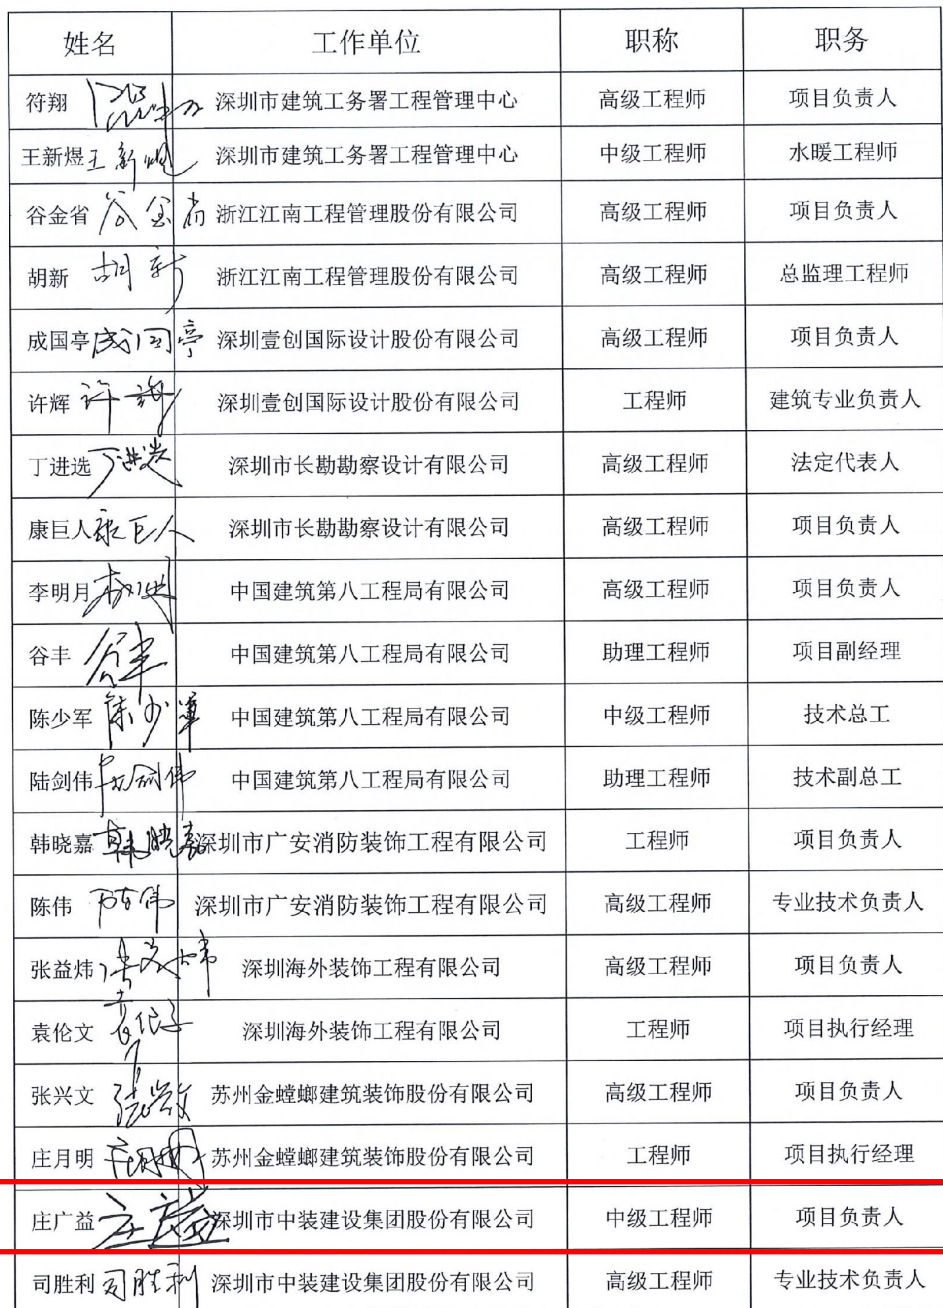 姓名 工作单位 职称 职务
符翔 深圳市建筑工务署工程管理中心 高级工程师 项目负责人
王新煜 王新煜 深圳市建筑工务署工程管理中心 中级工程师 水暖工程师
谷金省 谷金省 浙江江南工程管理股份有限公司 高级工程师 项目负责人
胡新 胡新 浙江江南工程管理股份有限公司 高级工程师 总监理工程师
成国亭 成国亭 深圳壹创国际设计股份有限公司 高级工程师 项目负责人
许辉 许辉 深圳壹创国际设计股份有限公司 工程师 建筑专业负责人
丁进选 丁进选 深圳市长勘勘察设计有限公司 高级工程师 法定代表人
康巨人 康巨人 深圳市长勘勘察设计有限公司 高级工程师 项目负责人
李明月 中国建筑第八工程局有限公司 高级工程师 项目负责人
谷丰 谷丰 中国建筑第八工程局有限公司 助理工程师 项目副经理
陈少军 陈少军 中国建筑第八工程局有限公司 中级工程师 技术总工
陆剑伟 陆剑伟 中国建筑第八工程局有限公司 助理工程师 技术副总工
韩晓嘉 韩晓嘉 深圳市广安消防装饰工程有限公司 工程师 项目负责人
陈伟 陈伟 深圳市广安消防装饰工程有限公司 高级工程师 专业技术负责人
张益炜 张益炜 深圳海外装饰工程有限公司 高级工程师 项目负责人
袁伦文 袁伦文 深圳海外装饰工程有限公司 工程师 项目执行经理
张兴文 张兴文 苏州金螳螂建筑装饰股份有限公司 高级工程师 项目负责人
庄月明 庄月明 苏州金螳螂建筑装饰股份有限公司 工程师 项目执行经理
庄广益 庄广益 深圳市中装建设集团股份有限公司 中级工程师 项目负责人
司胜利 司胜利 深圳市中装建设集团股份有限公司 高级工程师 专业技术负责人